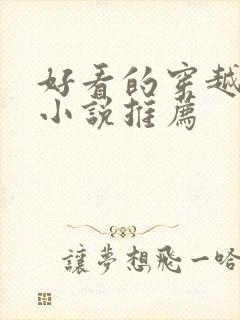 好看的穿越
小说推薦
讓夢想飛一哈